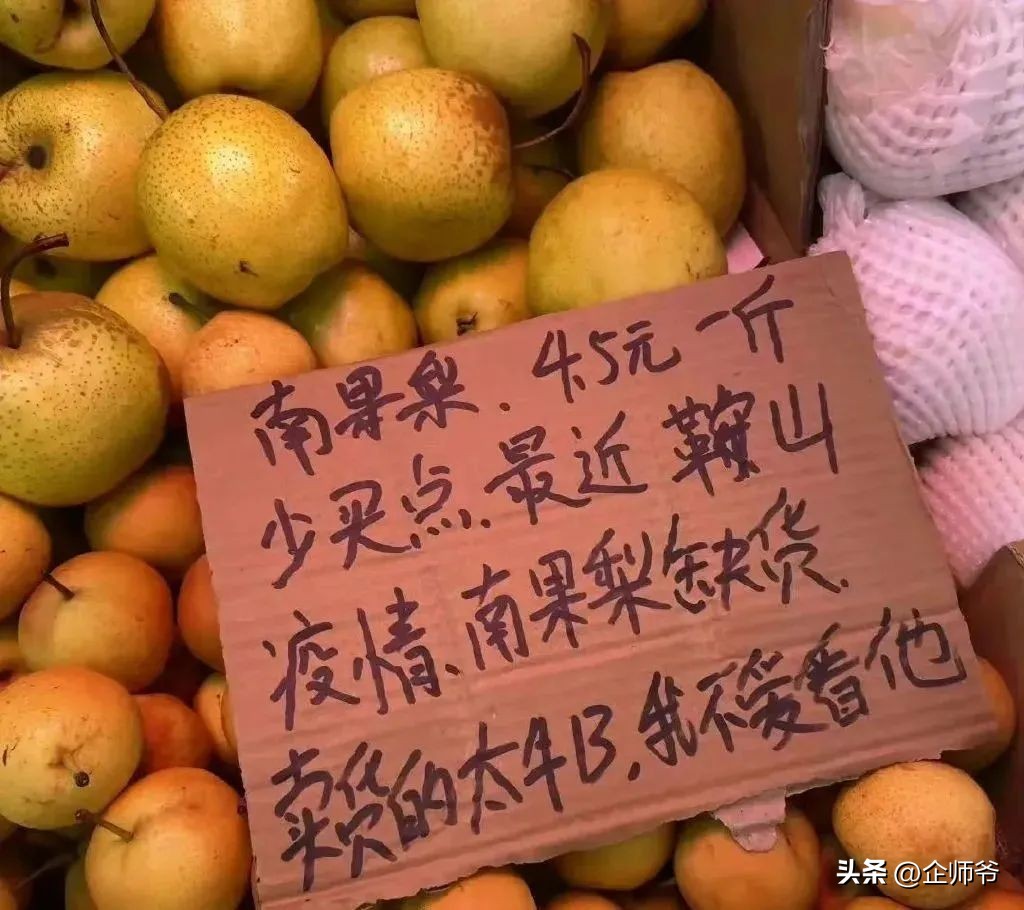 南果梨. 4.5元一斤
少买点.最近鞍山
疫情、南果梨缺货.
卖货的太牛B.我不爱看他
头条 @企师爷